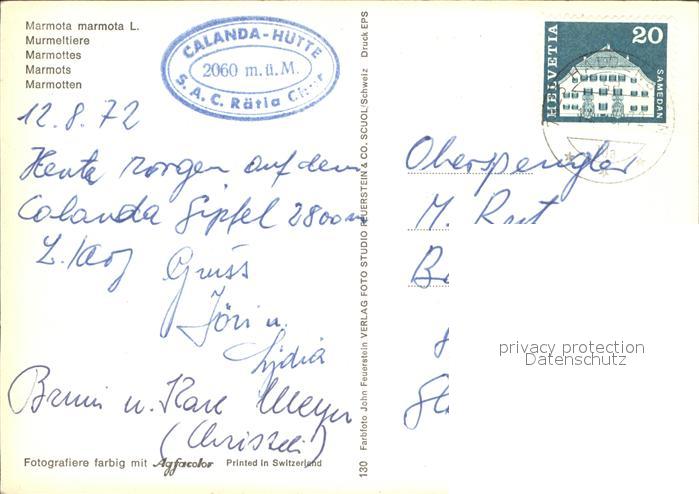 Marmota marmota L.
Murmeltiere
Marmottes
Marmots
Marmotten
CALANDA-HÜTTE
2060 m.ü.M.
S.A.C. Rätia Chur
Druck EPS
HELVETIA
20
SAMEDAN
12.8.72
Heute morgen auf dem
Calanda Gipfel 2800m
Gruss
Jöri u.
Lydia
Bruni u. Karl Meyer
Fotografiere farbig mit Agfacolor Printed in Switzerland
130 Farbfoto John Feuerstein VERLAG FOTO STUDIO FEUERSTEIN & CO. SCUOL/Schweiz
Oberspengler
M.
privacy protection
Datenschutz